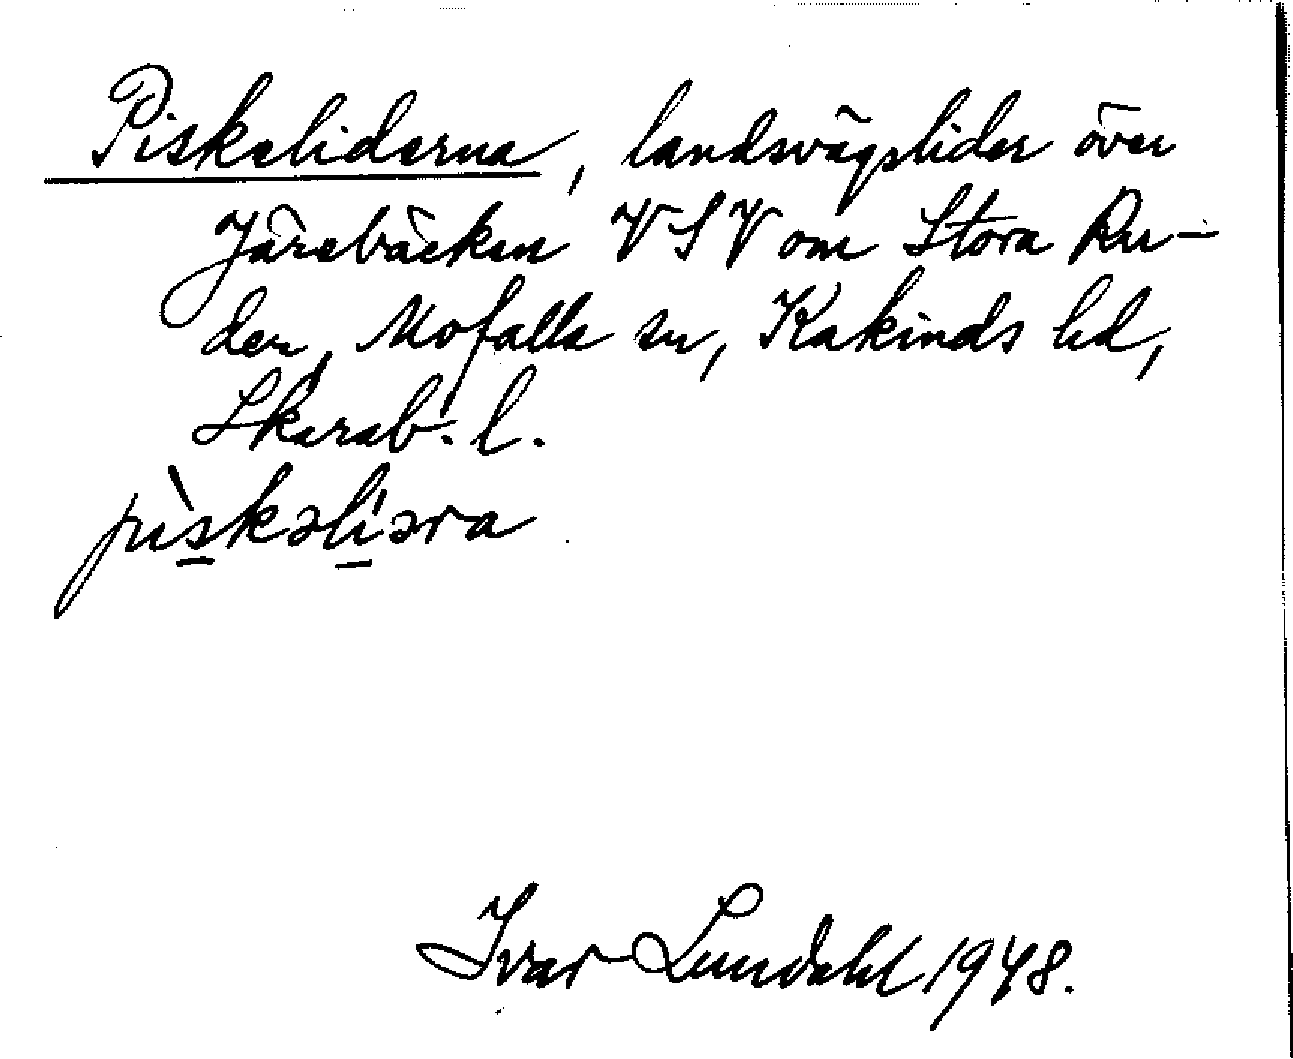 Piskeliderna, landsvägslider över
Järebäcken VSV om Stora Ru-
der, Mofalla sn, Kakinds hd,
Skarab. l.
pìskəliəra
Ivar Lundahl 1948.